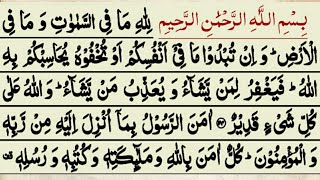 بِسْمِ اللَّهِ الرَّحْمَٰنِ الرَّحِيمِ لِلّٰهِ مَا فِی السَّمٰوٰتِ وَ مَا فِی
الْاَرْضِؕ وَ اِنْ تُبْدُوْا مَا فِیْۤ اَنْفُسِكُمْ اَوْ تُخْفُوْهُ یُحَاسِبْكُمْ بِهِ
اللّٰهُؕ فَیَغْفِرُ لِمَنْ یَّشَآءُ وَ یُعَذِّبُ مَنْ یَّشَآءُؕ وَ اللّٰهُ عَلٰی
كُلِّ شَیْءٍ قَدِیْرٌ۝ اٰمَنَ الرَّسُوْلُ بِمَاۤ اُنْزِلَ اِلَیْهِ مِنْ رَّبِّهٖ
وَ الْمُؤْمِنُوْنَؕ كُلٌّ اٰمَنَ بِاللّٰهِ وَ مَلٰٓىِٕكَتِهٖ وَ كُتُبِهٖ وَ رُسُلِهٖ